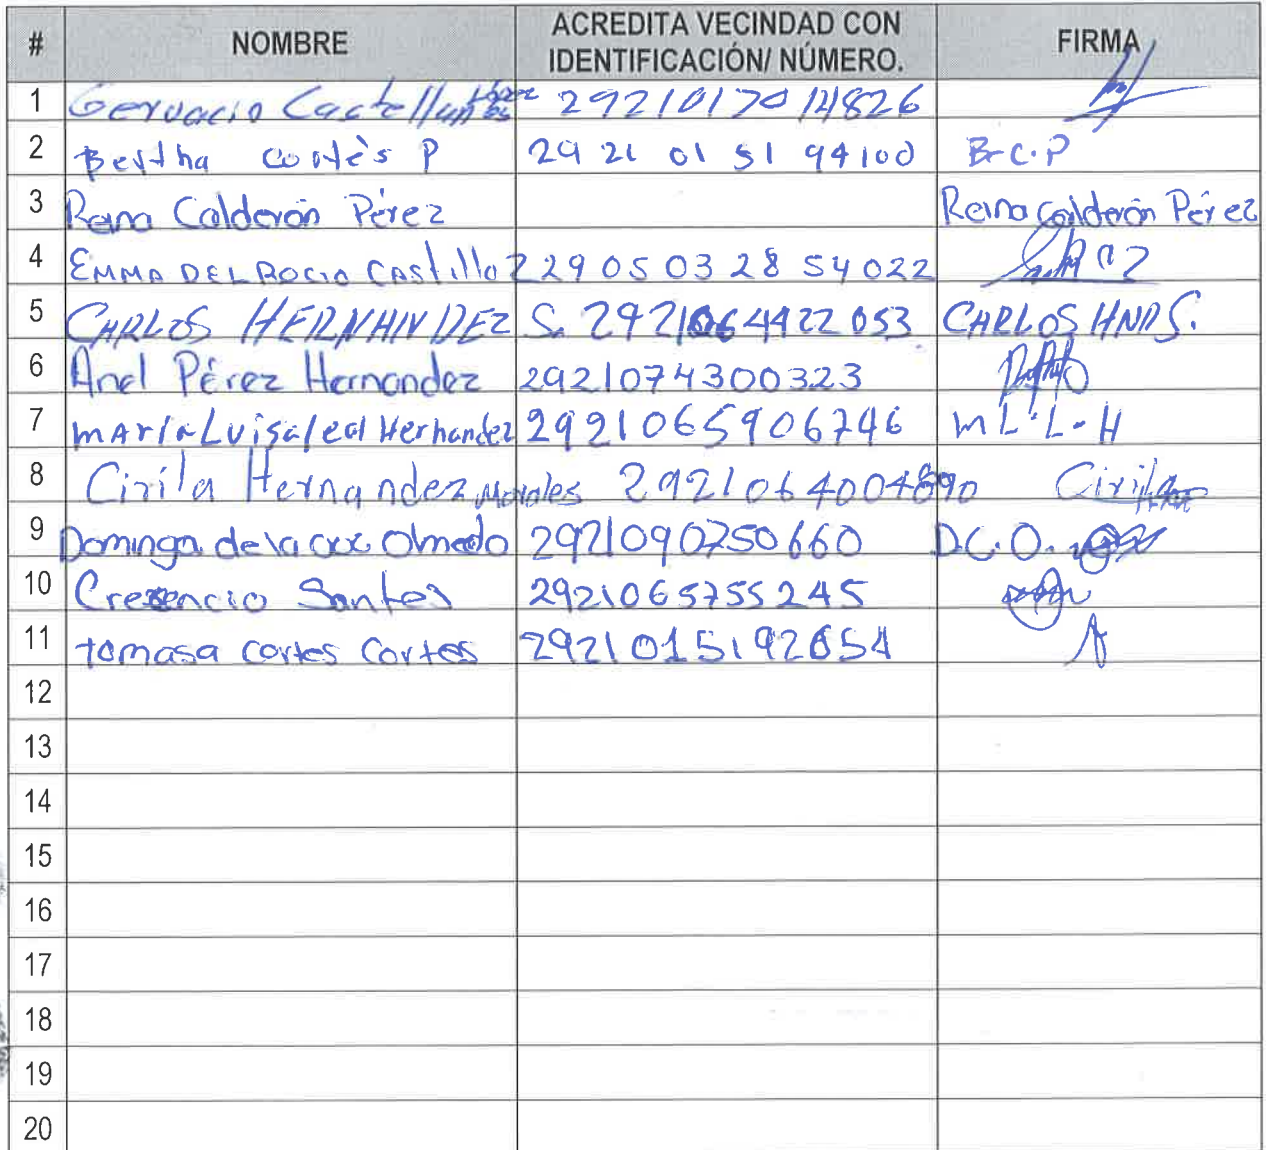 # NOMBRE ACREDITA VECINDAD CON IDENTIFICACIÓN/ NÚMERO. FIRMA
1 Gervacio Castellanos López 2921017014826
2 Bertha Cortés P 29 21 01 51 94100 B-C.P
3 Reina Calderón Pérez Reina Calderón Pérez
4 EMMA DEL ROCIO CAStillo Z 29 05 03 28 54022
5 CARLOS HERNANDEZ S. 2921064422053 CARLOS HNDS.
6 Anel Pérez Hernandez 2921074300323
7 MAríA Luisa leal Hernandez 2921065906746 M L. L - H
8 Cirila Hernandez Morales 2921064004890 Cirila
9 Dominga de la cruz Olmedo 2921090750660 D.C.O.
10 Cresencio Santos 2921065755245
11 tomasa cortes Cortes 2921015192654
12
13
14
15
16
17
18
19
20